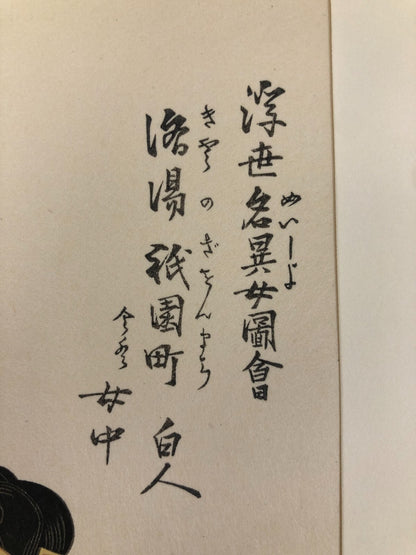 浮世名異女圖會
めいしよ
洛陽祇園町 白人
きやうのぎをんまち
女中